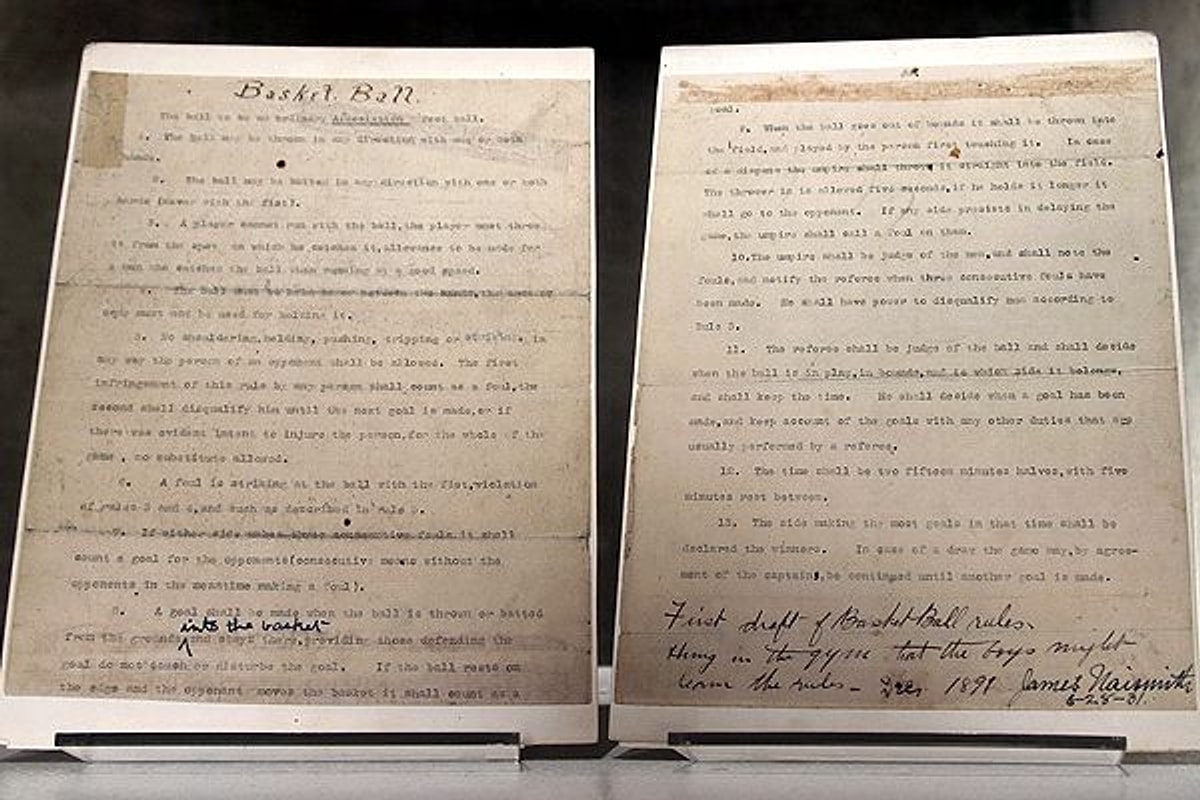 Basket Ball.
The ball to be an ordinary Association foot ball.
1. The ball may be thrown in any direction with one or both
hands.
2. The ball may be batted in any direction with one or both
hands (never with the fist).
3. A player cannot run with the ball, the player must throw
it from the spot on which he catches it, allowance to be made for
a man who catches the ball when running at a good speed.
4. The ball must be held in or between the hands, the arms or
body must not be used for holding it.
5. No shouldering, holding, pushing, tripping or striking in
any way the person of an opponent shall be allowed. The first
infringement of this rule by any person shall count as a foul, the
second shall disqualify him until the next goal is made, or if
there was evident intent to injure the person, for the whole of the
game, no substitute allowed.
6. A foul is striking at the ball with the fist, violation
of rules 3 and 4, and such as described in rule 5.
7. If either side makes three consecutive fouls it shall
count a goal for the opponents (consecutive means without the
opponents in the meantime making a foul).
8. A goal shall be made when the ball is thrown or batted
into the basket
from the grounds and stays there, providing those defending the
goal do not touch or disturb the goal. If the ball rests on
the edge and the opponent moves the basket it shall count as a
goal.
9. When the ball goes out of bounds it shall be thrown into
the field, and played by the person first touching it. In case
of a dispute the umpire shall throw it straight into the field.
The thrower in is allowed five seconds, if he holds it longer it
shall go to the opponent. If any side persists in delaying the
game, the umpire shall call a foul on them.
10. The umpire shall be judge of the men, and shall note the
fouls, and notify the referee when three consecutive fouls have
been made. He shall have power to disqualify men according to
Rule 5.
11. The referee shall be judge of the ball and shall decide
when the ball is in play, in bounds, and to which side it belongs,
and shall keep the time. He shall decide when a goal has been
made, and keep account of the goals with any other duties that are
usually performed by a referee.
12. The time shall be two fifteen minutes halves, with five
minutes rest between.
13. The side making the most goals in that time shall be
declared the winners. In case of a draw the game may, by agree-
ment of the captains, be continued until another goal is made.
First draft of Basket Ball rules.
Hung in the gym that the boys might
learn the rules - Dec 1891 James Naismith
6-28-31.